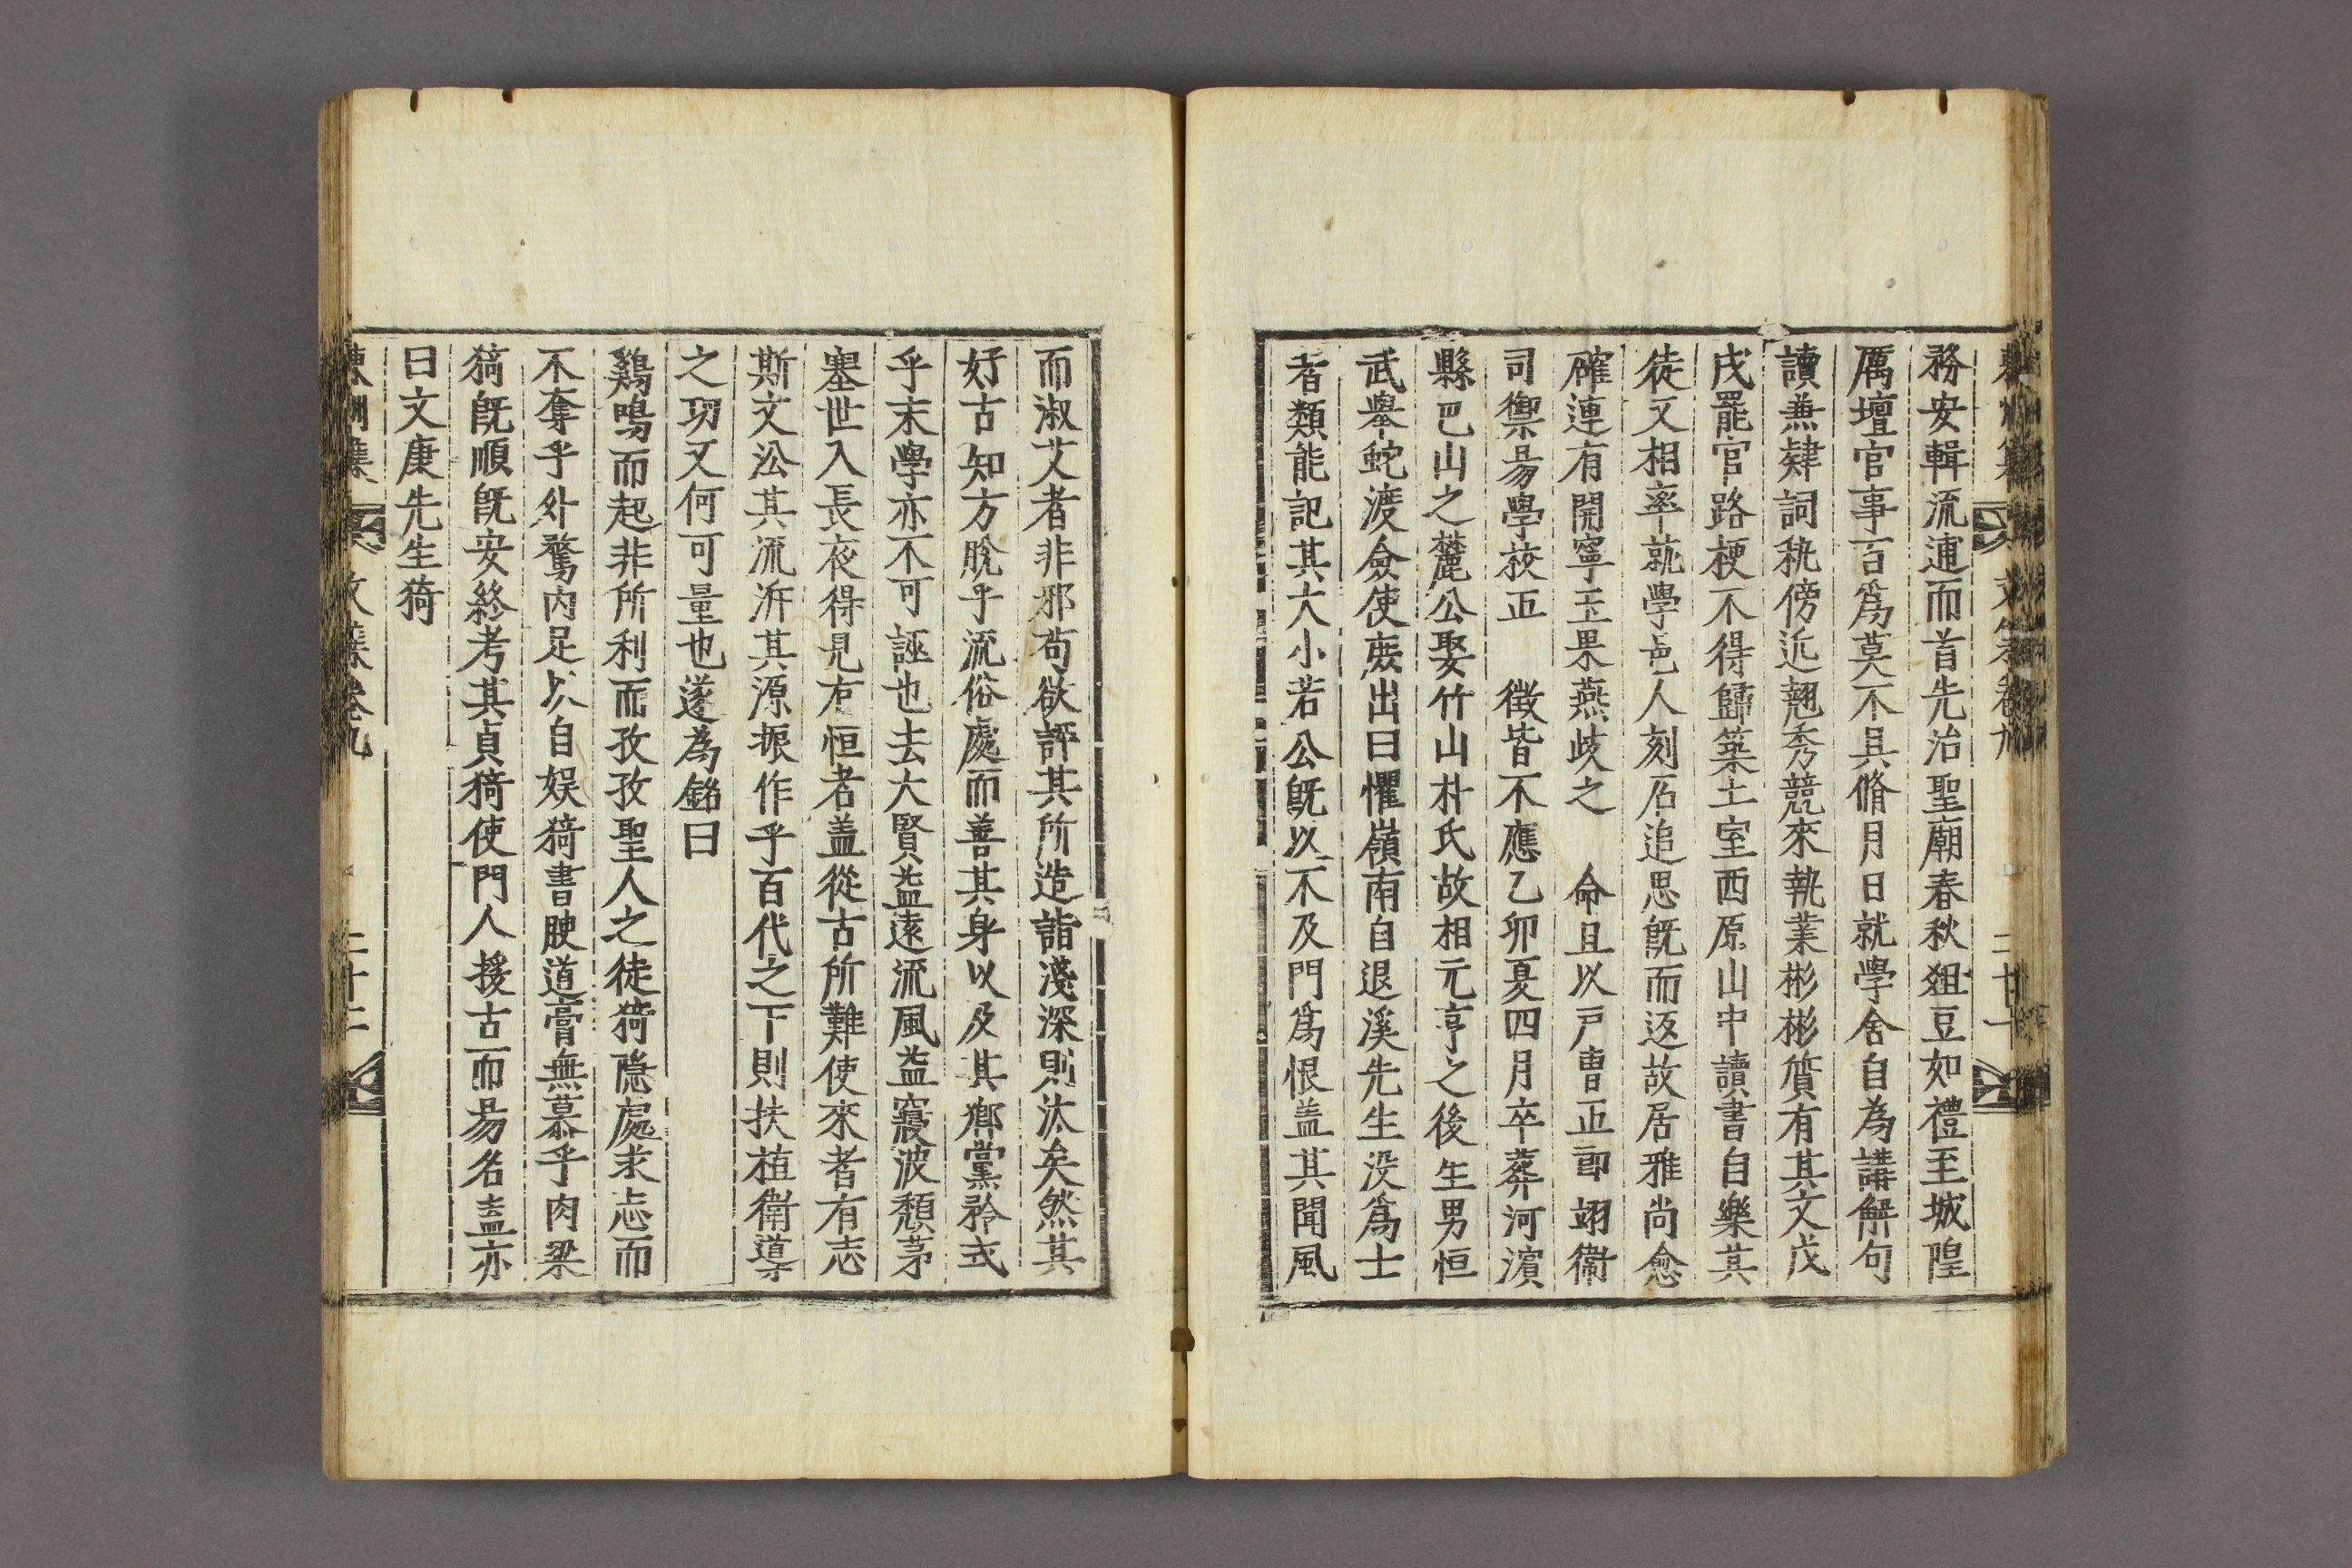 務安輯流逋而首先治聖廟春秋俎豆如禮至城隍
厲壇官事百爲莫不具脩月日就學舍自為講解句
讀兼肄詞執傍近翹秀競來執業彬彬質有其文戊
戌罷官路梗不得歸築土室西原山中讀書自樂其
徒又相率就學邑人刻石追思旣而返故居雅尚愈
確連有開寧王果燕歧之　命且以戸曹正郎翊衛
司禦易學挍正　徵皆不應乙卯夏四月卒葬河濱
縣巴山之麓公娶竹山朴氏故相元亨之後生男恒
武擧蛇渡僉使庶出曰懼嶺南自退溪先生没爲士
者類能記其大小若公旣以不及門爲恨盖其聞風
而淑艾者非邪苟欲評其所造詣淺深則汰矣然其
好古知方脫乎流俗處而善其身以及其鄉黨矜式
乎末學亦不可誣也去大賢益遠流風益寢波頽茅
塞世入長夜得見有恒者盖從古所難使來者有志
斯文沿其流泝其源振作乎百代之下則扶植衛導
之功又何可量也遂為銘曰
鷄鳴而起非所利而孜孜聖人之徒猗隱處求志而
不奪乎外騖內足以自娛猗書腴道膏無慕乎肉梁
猗旣順旣安終考其貞猗使門人援古而易名盍亦
曰文康先生猗
東洲集　文集卷九　二十二